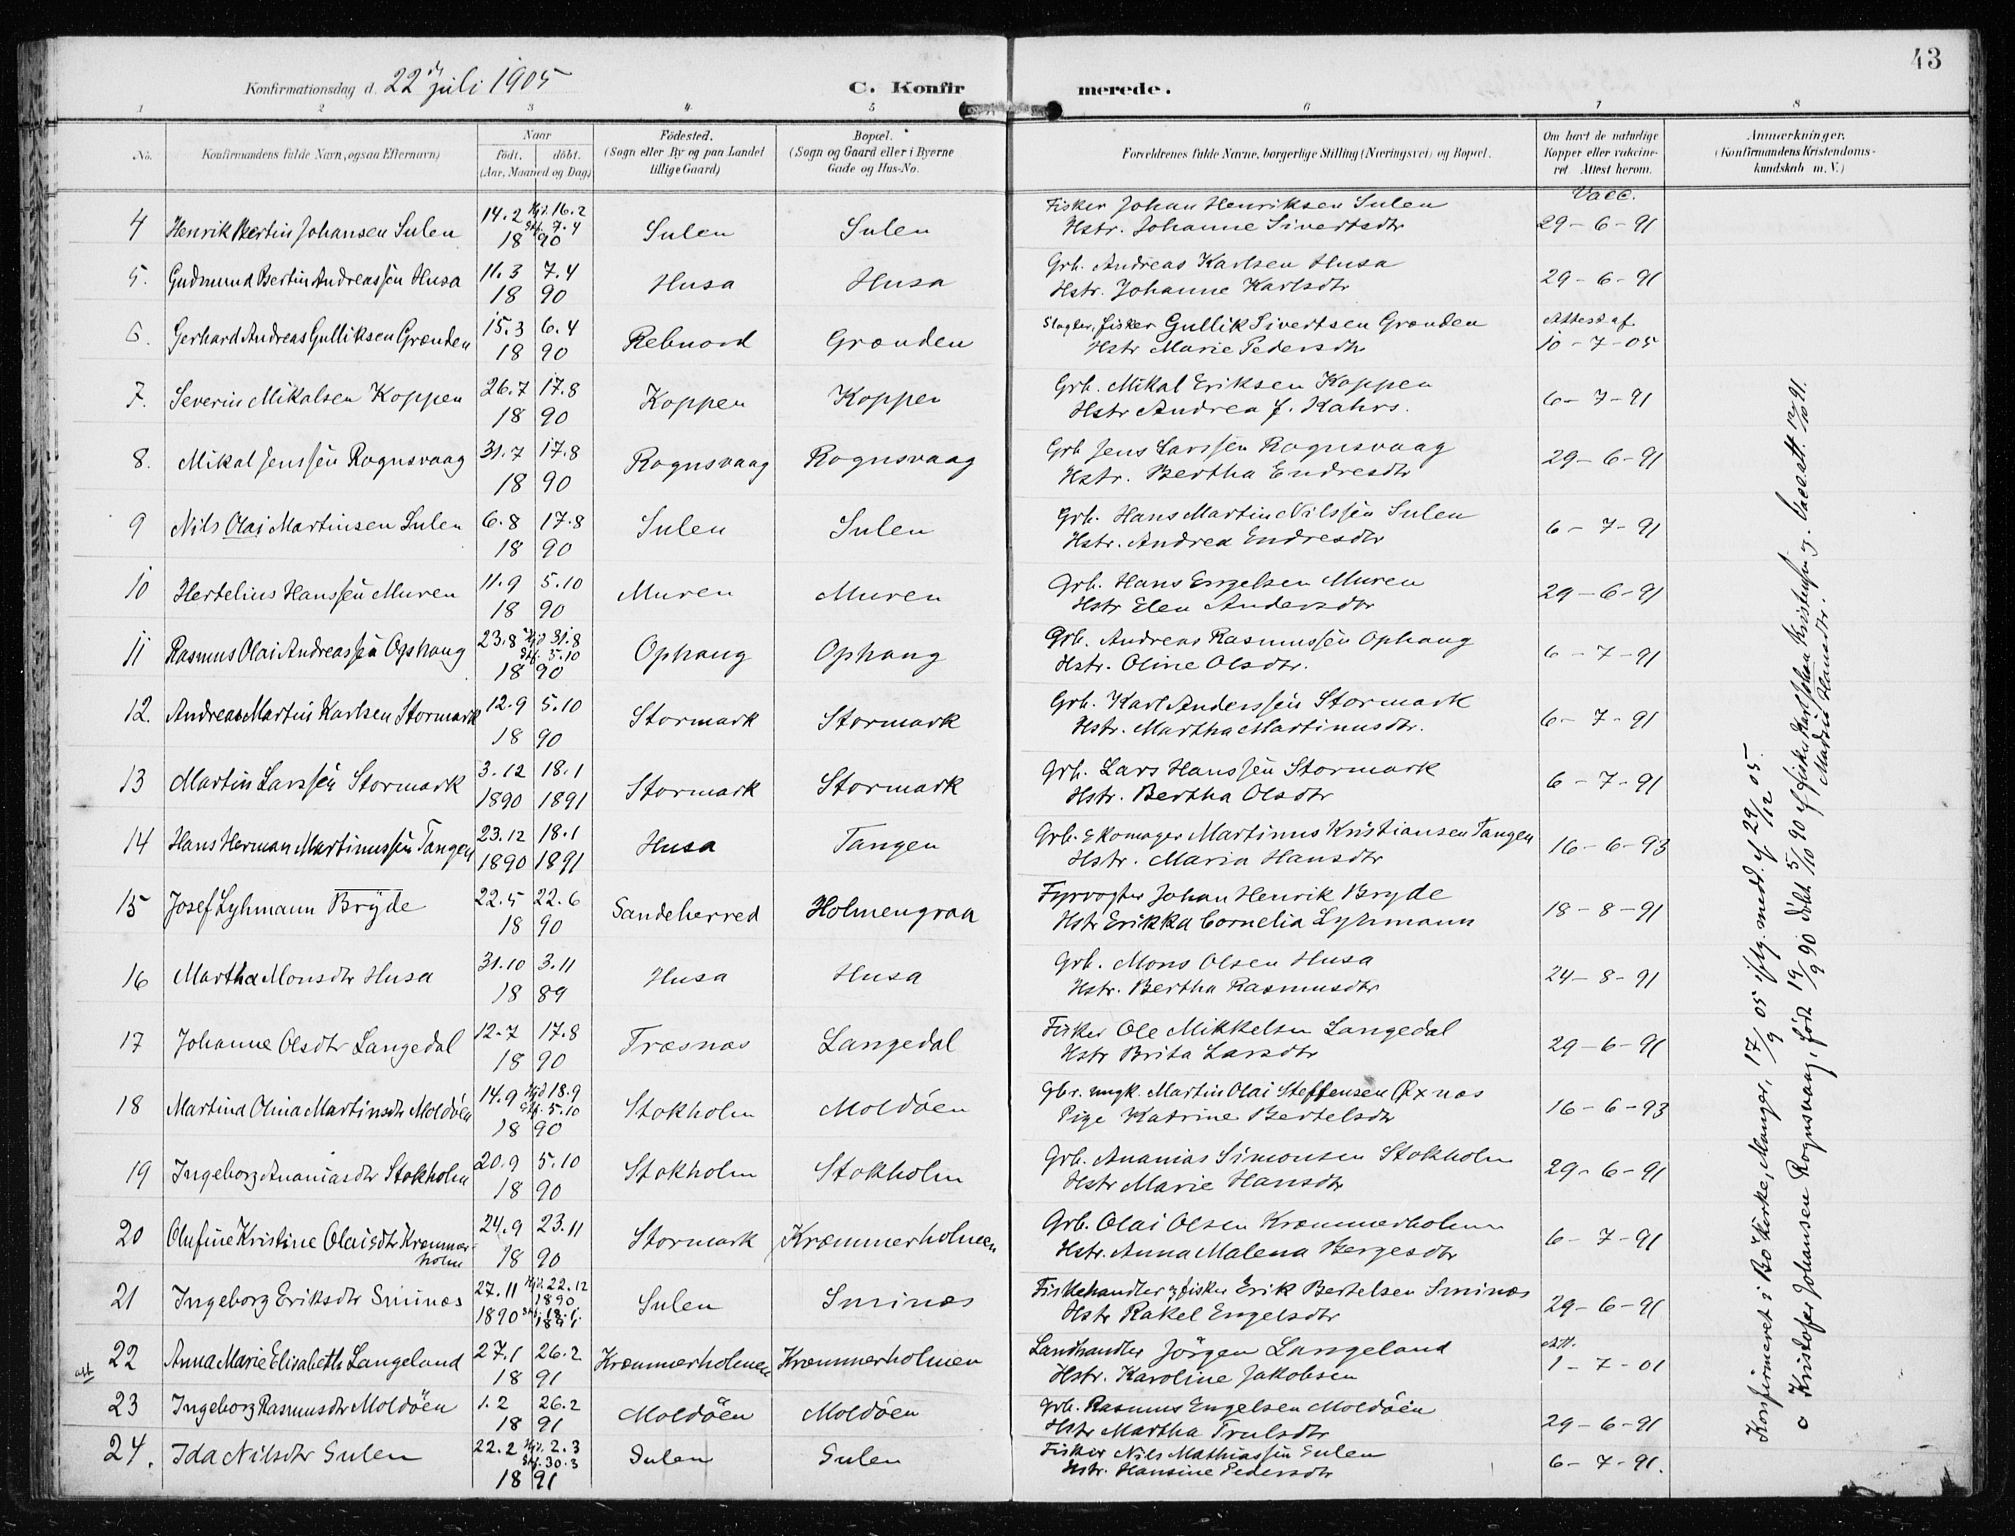 43
Konfirmationsdag d. 22d juli 1905
C. Konfirmerede.
1 2 3 4 5 6 7 8
No. Konfirmandens fulde Navn, ogsaa Efternavn) Naar födt. döbt. (Aar, Maaned og Dag) Födested. (Sogn eller By og paa Landet tillige Gaard) Bopæl. (Sogn og Gaard eller i Byerne Gade og Hus-No. Forældrenes fulde Navne, borgerlige Stilling (Næringsvei) og Bopæl. Om havt de naturlige Kopper eller vakcineret. Attest herom. Anmærkninger. (Konfirmandens Kristendomskundskab m. V.)
Vacc.
4 Henrik Bertin Johansen Sulen 14.2 Hjd. 16.2 Stf. 7.4 1890 Sulen Sulen Fisker Johan Henriksen Sulen
Hstr. Johanne Sivertsdtr 29-6-91
5. Gudmund Bertin Andreassen Husa 11.3 7.4 1890 Husa Husa Grb. Andreas Karlsen Husa
Hstr. Johanne Karlsdtr 29-6-91
6. Gerhard Andreas Gulliksen Grønden 15.3 6.4 1890 Rebnord Grønden Slagter, fisker Gullik Sivertsen Grønden
Hstr Marie Pedersdtr Attest af 10-7-05
7. Severin Mikalsen Koppen 26.7 17.8 1890 Koppen Koppen Grb. Mikal Eriksen Koppen
Hstr Andrea J. Kahrs. 6-7-91
8. Mikal Jenssen Rognsvaag 31.7 17.8 1890 Rognsvaag Rognsvaag Grb Jens Larssen Rognsvaag
Hstr. Bertha Endresdtr 29-6-91
9 Nils Olai Martinsen Sulen 6.8 17.8 1890 Sulen Sulen Grb. Hans Martin Nilssen Sulen
Hstr. Andrea Endresdtr 6-7-91
10 Hertelius Hanssen Muren 11.9 5.10 1890 Muren Muren Grb. Hans Engelsen Muren
Hstr Elen Andersdtr 29-6-91
11 Rasmus Olai Andreassen Ophaug 23.8 Hjd 31.8 Stf. 5.10 1890 Ophaug Ophaug Grb. Andreas Rasmussen Ophaug
Hstr. Oline Olsdtr. 6-7-91
12. Andreas Martin Karlsen Stormark 12.9 5.10 1890 Stormark Stormark Grb. Karl Anderssen Stormark
Hstr. Martha Martinusdtr. 6-7-91
13 Martin Larssen Stormark 3.12 1890 18.1 1891 Stormark Stormark Grb. Lars Hanssen Stormark
Hstr. Bertha Olsdtr 6-7-91
14 Hans Herman Martinussen Tangen 23.12 1890 18.1 1891 Husa Tangen Grb. Skomager Martinus Kristiansen Tangen
Hstr. Maria Hansdtr 16-6-93
15 Josef Lyhmann Bryde 22.5 22.6 1890 Sandeherred Holmengraa Fyrvogter Johan Henrik Bryde
Hstr Erikka Cornelia Lyhmann 18-8-91
16 Martha Monsdtr Husa 31.10 3.11 1889 Husa Husa Grb. Mons Olsen Husa
Hstr. Bertha Rasmusdtr 24-8-91
17 Johanne Olsdtr Langedal 12.7 17.8 1890 Træsnæs Langedal Fisker Ole Mikkelsen Langedal
Hstr Brita Larsdtr 29-6-91
18 Martina Olina Martinsdtr Moldöen 14.9 Hjd 18.9 Stf. 5.10 1890 Stokholm Moldöen Gbr. ungk. Martin Olai Steffensen Öxnæs
Pige Katrine Bertelsdtr 16-6-93
19 Ingeborg Ananiasdtr Stokholm 20.9 5.10 1890 Stokholm Stokholm Grb. Ananias Simonsen Stokholm
Hstr Marie Hansdtr 29-6-91
20 Olufine Kristine Olaisdtr Kræmmerholm 24.9 23.11 1890 Stormark Kræmmerholmen Grb. Olai Olsen Kræmmerholmen
Hstr. Anna Malena Børgesdtr 6-7-91
21 Ingeborg Eriksdtr Sminæs 27.11 1890 Hjd. 22.12 1890 Stf. 18.1. 1891 Sulen Sminæs Fiskehandler og fisker Erik Bertelsen Sminæs
Hstr Rakel Engelsdtr 29-6-91
att 22 Anna Marie Elisabeth Langeland 27.1 26.2 1891 Kræmmerholmen Kræmmerholmen Landhandler Jörgen Langeland
Hstr. Karoline Jakobsen Att. 1-7-01
23 Ingeborg Rasmusdtr Moldöen 1.2 26.2 1891 Moldöen Moldöen Grb. Rasmus Engelsen Moldöen
Hstr Martha Trulsdtr 29-6-91
24. Ida Nilsdtr Sulen 22.2 Hjd. 2.3 Stf. 30.3 1891 Sulen Sulen Fisker Nils Mathiassen Sulen
Hstr. Hansine Pedersdtr 6-7-91.
Konfirmeret i Bö kirke, Manger, 17/9 05 iflg. medd. af 29/12 05.
Kristofer Johansen Rognsvaag, født 19/9 90 döbt 5/10 90 af fisker Karl Johan Kristofersen og Vaccatt. 12/10 91.
Madsine Hansdtr.